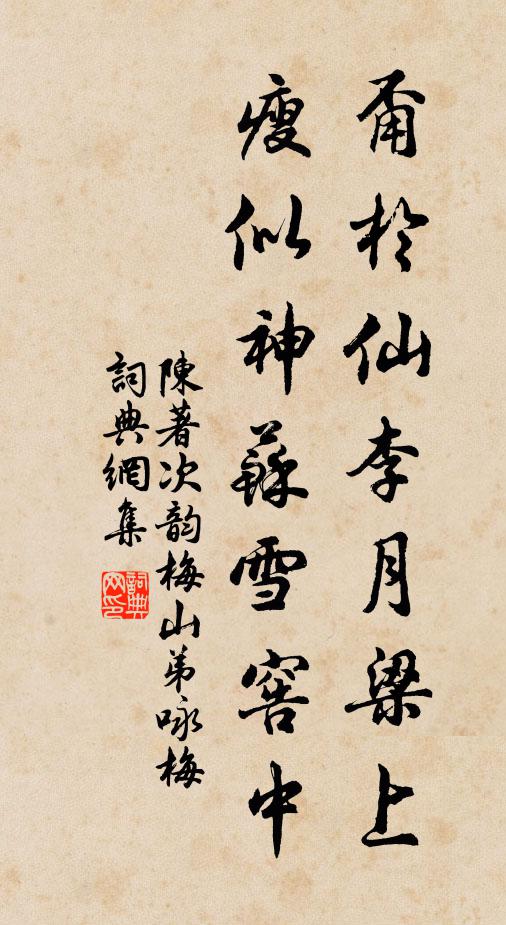 甭於仙李月梁上
瘦似神蘇雪窖中
陳著次韵梅山弟咏梅
詞典網集
詞典網印